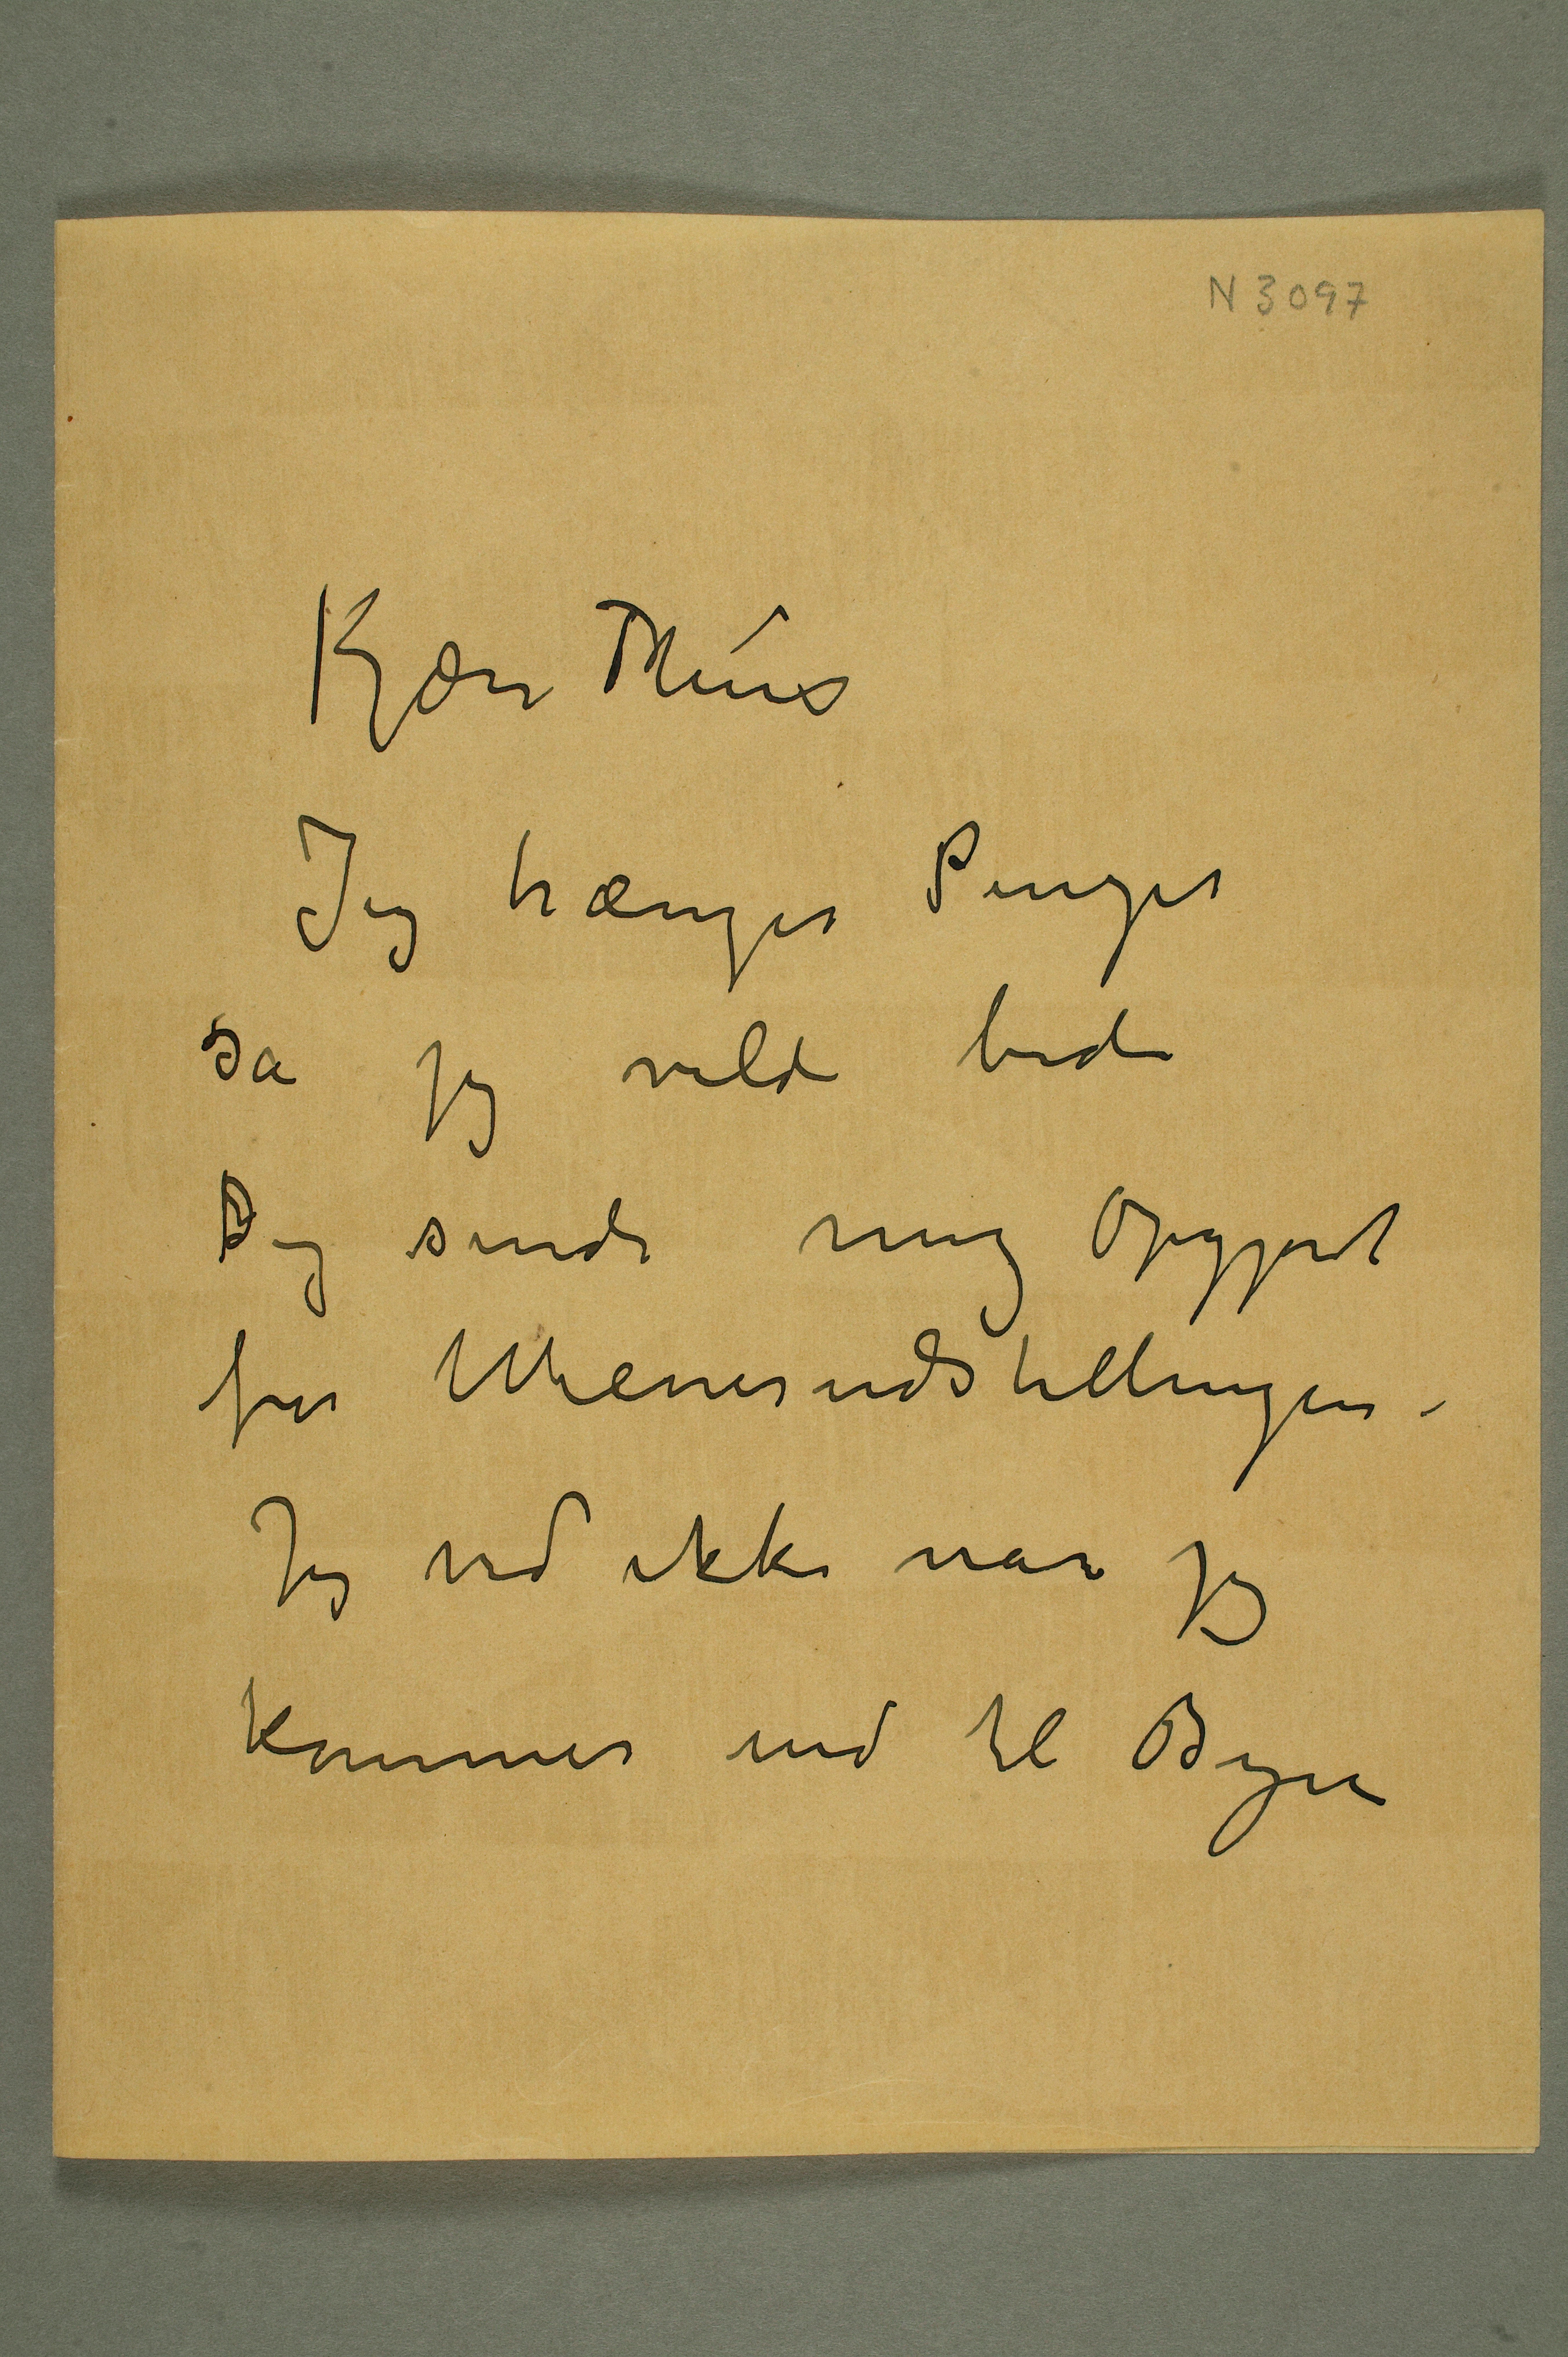 N 3097
Kjære Thiis
Jeg trænger Penger
så jeg vilde bede
Dig sende mig Opgjørt
for Wienerudstillingen.
Jeg ved ikke når jeg
kommer ind til Byen